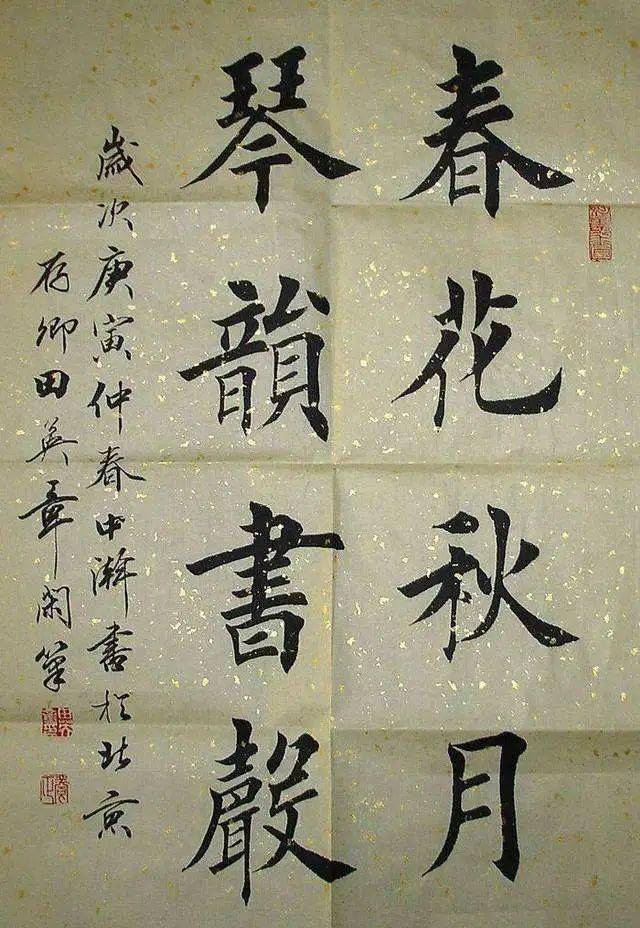 春花秋月
琴韻書聲
歲次庚寅仲春中澣書於北京
存卿田英章閑筆